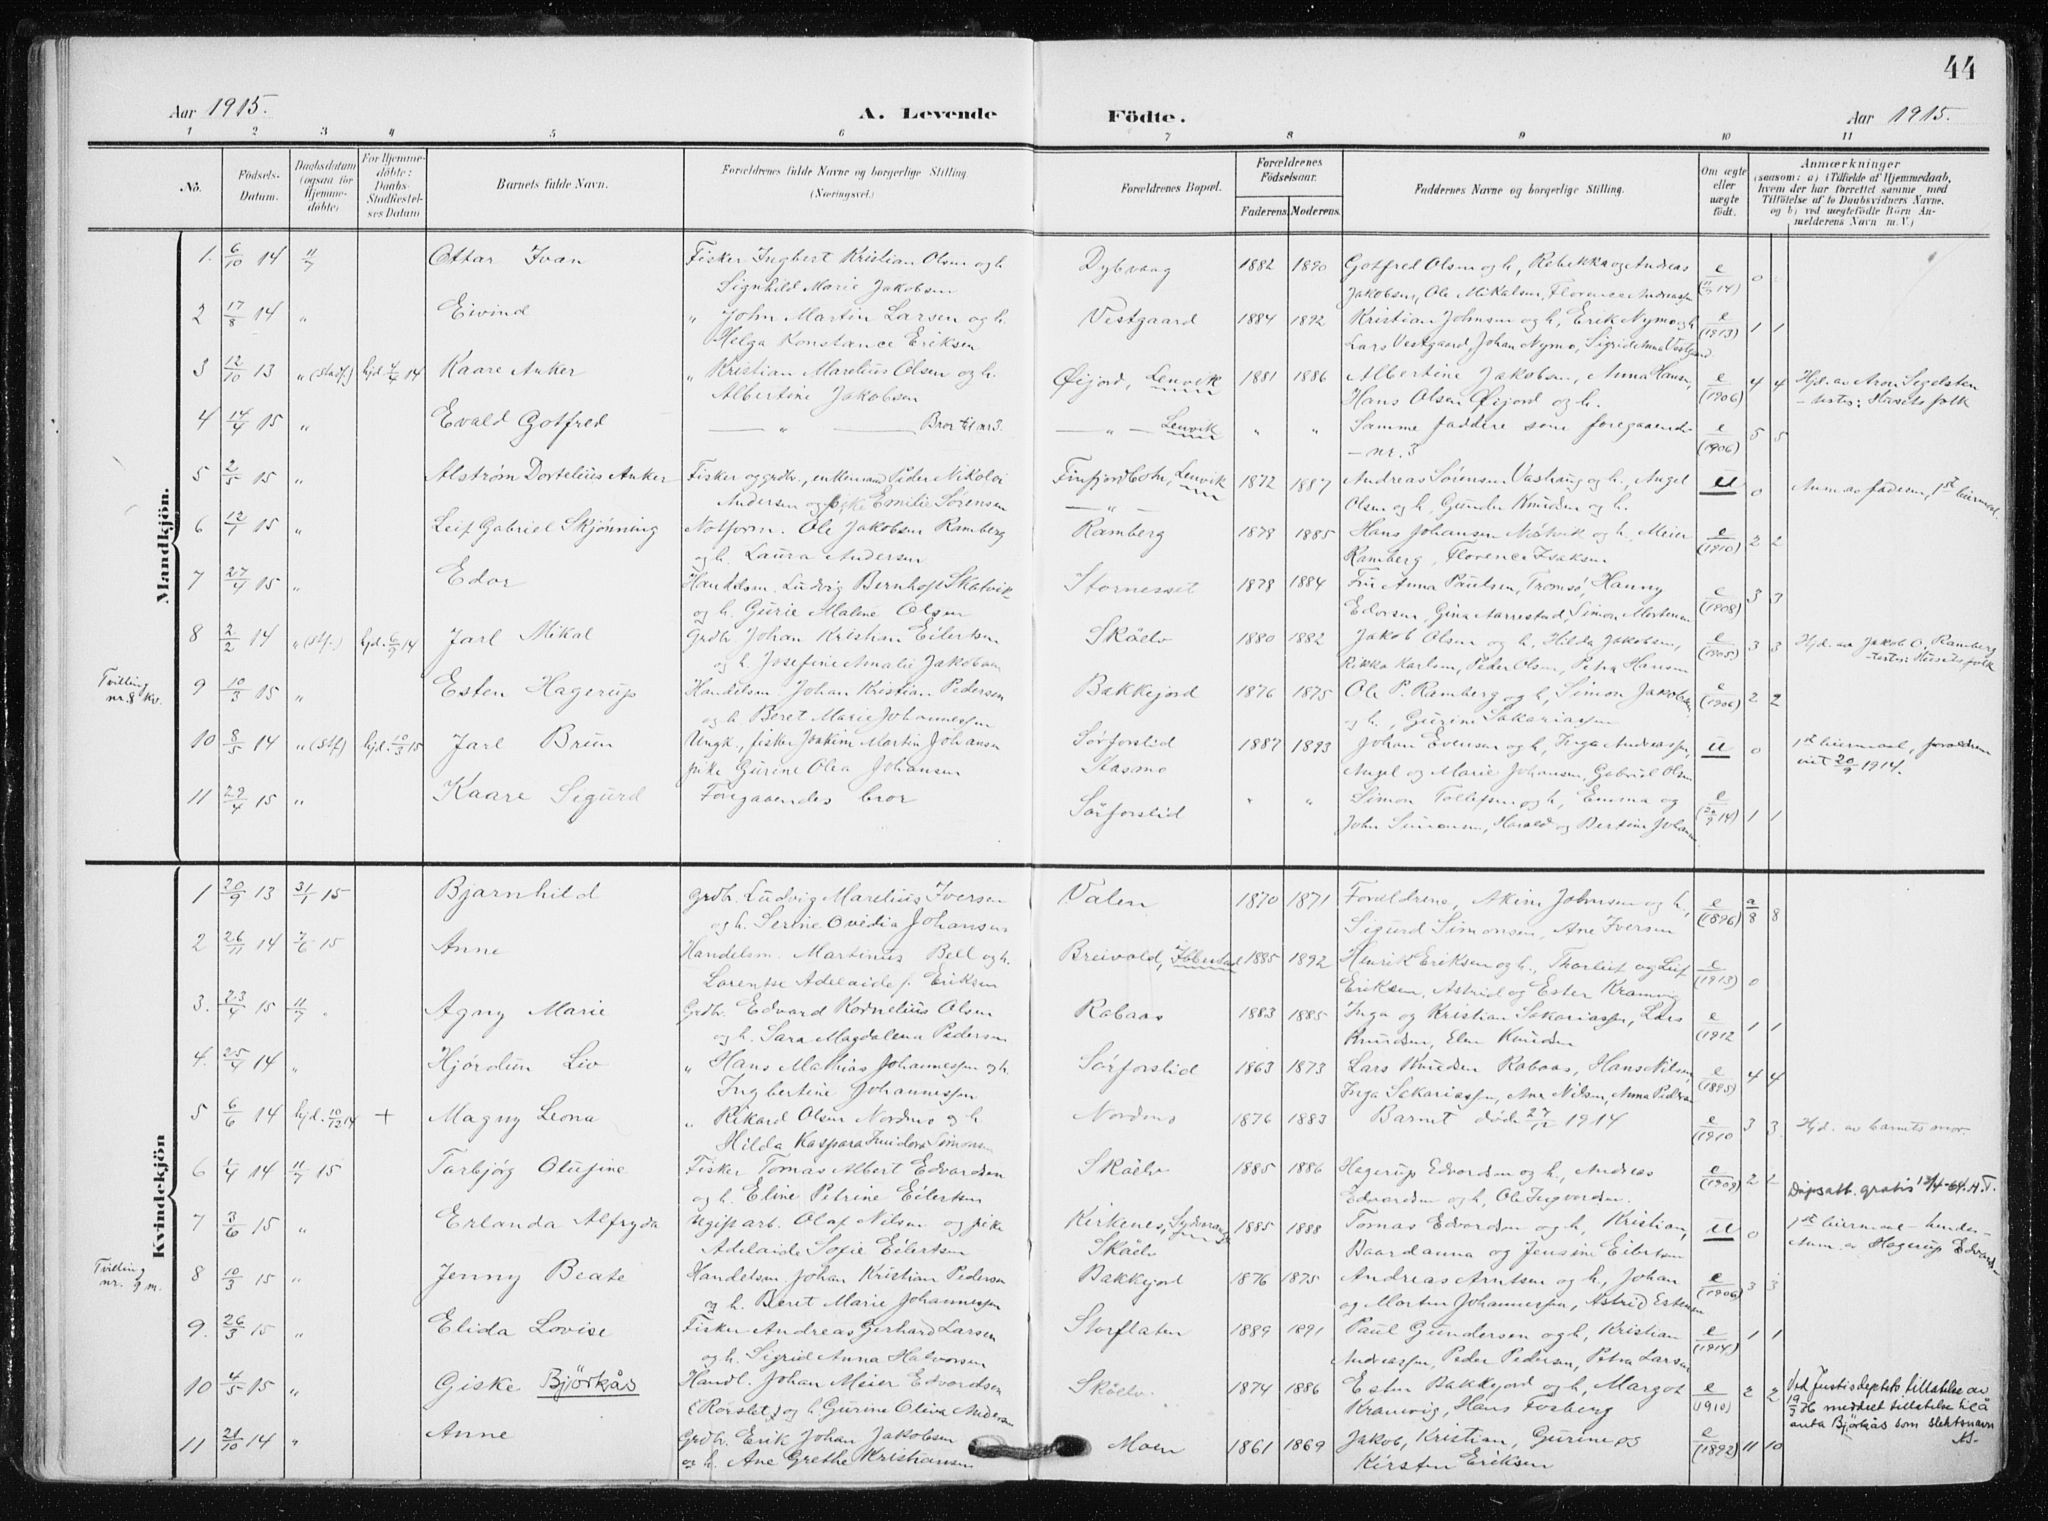 44
Aar 1915.
A. Levende
Födte.
Aar 1915.
1 2 3 4 5 6 7 8 9 10 11
No.
Födsels-
Datum.
Daabsdatum
(ogsaa for
Hjemme-
döbte)
For Hjemme-
döbte:
Daabs-
Stadfæstel-
ses Datum
Barnets fulde Navn.
Forældrenes fulde Navne og borgerlige Stilling
(Næringsvei.)
Forældrenes Bopæl.
Forældrenes
Födselsaar.
Faderens. Moderens.
Faddernes Navne og borgerlige Stilling.
Om ægte
eller
uægte
födt.
Anmærkninger
(saasom: a) i Tilfælde af Hjemmedaab,
hvem der har forrettet samme med
Tilföielse af to Daabsvidners Navne.
og b) ved uægtefödte Börn An-
melderens Navn m. V.)
Mandkjön.
1. 6/10 14 11/7 Ottar Ivan Fisker Ingbert Kristian Olsen og h. Dybvaag 1882 1890 Gotfred Olsen og h, Rebekka og Andreas e 0
Signhild Marie Jakobsen Jakobsen, Ole Mikalsen, Florence Andreassen
2 17/8 14 " Eivind " John Martin Larsen og h. Vestgaard 1884 1892 Kristian Johnsen og h, Erik Nymo og h e (1913) 1 1
Helga Konstance Eriksen Lars Vestgaard, Johan Nymo, Sigrid Anna Vestgaard
3 12/10 13 " (stadf.) hjd. 7/4 14 Kaare Anker " Kristian Marelius Olsen og h. Øijord, Lenvik 1881 1886 Albertine Jakobsen, Anna Hansen, e (1906) 4 4 Hjd. av Aron Segelsten
Albertine Jakobsen Hans Olsen Øijord og h. - tester: Husets folk
4 14/4 15 " Evald Gotfred — " — Bror til nr 3. — " — Lenvik " " Samme faddere som foregaaende e (1906) 5 5
- nr. 3
5 2/5 15 " Alstrøm Dortelius Anker Fisker og grdbr., enkemand Peder Nikolai Finfjordbotn, Lenvik 1872 1887 Andreas Sørensen Vashaug og h., Angel u 0 Anm. av faderen, 1ste leiermaal.
Andersen og pike Emilie Sørensen — " — Olsen og h, Gunder Knudsen og h.
6 12/1 15 " Leif Gabriel Skjønning Notform. Ole Jakobsen Ramberg Ramberg 1878 1885 Hans Johansen Nøtvik og h, Meier e (1910) 2 2
og h. Laura Andersen Ramberg, Florence Isaksen
7 27/4 15 " Edor Handelsm. Ludvig Bernhoft Skatvik Stornesset 1878 1884 Fru Anna Paulsen, Tromsø, Hanny e (1908) 3 3
og h. Gurie Malene Olsen Edvorsen, Gina Aarrestad, Simon Mortensen
8 2/2 14 " (stf.) hjd. 6/9 14 Jarl Mikal Grdbr. Johan Kristian Eilertsen Skåelv 1880 1882 Jakob Olsen og h, Hilda Jakobsen, e (1905) 3 3 Hjd. av Jakob O. Ramberg
og h. Josefine Amalie Jakobsen Rikka Karlsen, Peder Olsen, Petra Hansen - tester: Husets folk
Tvilling
nr. 8 kv.
9 10/3 15 " Esten Hagerup Handelsm. Johan Kristian Pedersen Bakkejord 1876 1875 Ole P. Ramberg og h, Simon Jakobsen e (1906) 2 2
og h. Beret Marie Johannessen og h., Gurine Sakariassen
10 8/5 14 " (stf) hjd. 10/3 15 Jarl Brun Ungk., fisker Joakim Martin Johansen Sørforslid 1887 1893 Johan Evensen og h, Inga Andreassen, u 0 1ste leiermaal, forældrene
pike Gurine Olea Johansen Kasmo Angel og Marie Johansen, Gabriel Olsen viet 20/9 1914.
11 29/4 15 " Kaare Sigurd Foregaaendes bror Sørforslid " " Simon Tollefsen og h, Emma og e (20/9 14) 1 1
John Simonsen, Harald og Bertine Johansen
Kvindekjön
1 20/9 13 31/1 15 Bjarnhild Grdbr. Ludvig Marelius Iversen Valen 1870 1871 Forældrene, Akim Johnsen og h, e (1896) a/8 8
og h. Serine Ovedia Johansen Sigurd Simonsen, Ane Iversen
2 26/11 14 7/6 15 Anne Handelsm. Martinus Bell og h. Breivold, Ibbestad 1885 1892 Henrik Eriksen og h., Thorleif og Leif e (1913) 0
Lorentse Adelaide f. Eriksen Eriksen, Astrid og Ester Kramvig
3. 23/4 15 11/7 " Agny Marie Grdbr. Edvard Kornelius Olsen Rabaas 1883 1885 Inga og Kristian Sakariassen, Lars e (1912 1 1
og h. Sara Magdalena Pedersen Knudsen, Elen Knudsen
4. 25/4 14 " Hjørdun Liv " Hans Mathias Johannessen og h. Sørforslid 1863 1873 Lars Knudsen Rabaas, Hans Nilsen, e (1895) 4 4
Ingbertine Johannessen Inga Sakariassen, Ane Nilsen, Anna Pedersen
5 6/6 14 hjd. 10/12 14 + Magny Leona " Rikard Olsen Nordmo og h. Nordmo 1876 1883 Barnet døde 27/12 1914 e (1910 3 3. Hjd. av barnets mor.
Hilda Kaspara Indiora Simonsen
6 1/4 14 11/7 15 Torbjøg Olufine Fisker Tomas Albert Edvardsen Skåelv 1885 1886 Hagerup Edvardsen og h, Andreas e (1909) 2 2 Dåpsatt. gratis 13/4-64. A.T.
og h. Eline Petrine Eilertsen Edvardsen og h, Ole Ingvordsen.
7 3/6 15 " Erlanda Alfryda Ugift arb. Olaf Nilsen og pike Kirkenes, Sydvaranger 1885 1888 Tomas Edvardsen og h, Kristian, u 0 1ste leiermaal - hendes -
Adelaide Sofie Eilertsen Skåelv Baardanna og Jensine Eilertsen Anm. av Hagerup Edvards.
Tvilling
nr. 9 m.
8 10/3 15 " Jenny Beate Handelsm. Johan Kristian Pedersen Bakkejord 1876 1875 Andreas Arntsen og h, Johan e (1906) 3 3
og h. Beret Marie Johannessen og Morten Johannessen, Astrid Estensen
9. 26/3 15 " Elida Lovise Fisker Andreas Gerhard Larsen Storflaten 1889 1891 Paul Gundersen og h, Kristian e (1914) 1 1
og h. Sigrid Anna Halvorsen Andreassen, Peder Pedersen, Petra Larsen
10 4/5 15 " Giske Björkås Handl. Johan Meier Edvardsen Skåelv 1874 1886 Esten Bakkejord og h, Margot e (1910) 2 2 Ved Justisdeptets tillatelse av
(Rørslet) og h. Gurine Oliva Andersen Kramvig, Hans Forberg 19/3 H meddelt tillatelse til å
anta Björkås som slektsnavn
11 21/10 14 " Anne Grdbr. Erik Johan Jakobsen Moen 1861 1869 Jakob, Kristian, Gurine og e (1892) 11 10
og h. Ane Grethe Kristiansen Kirsten Eriksen